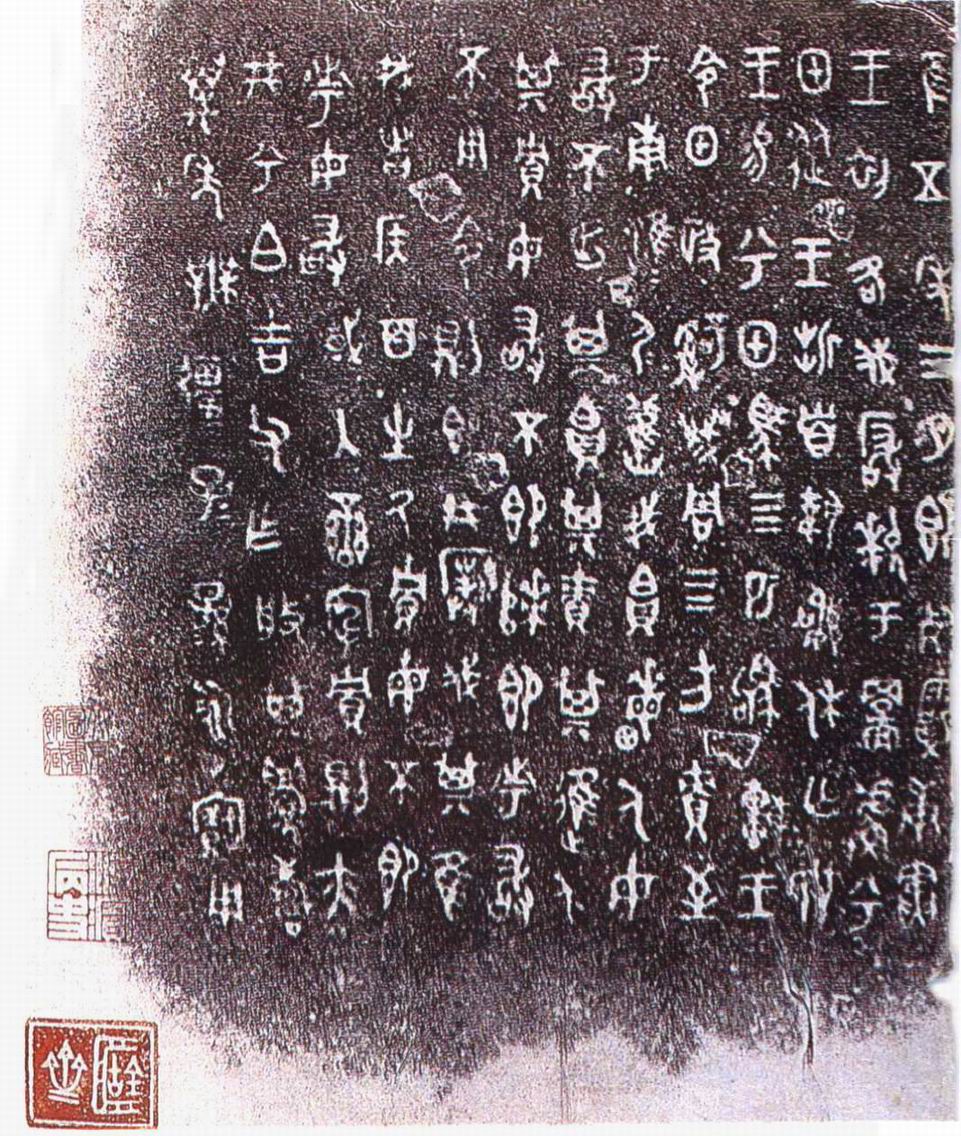 隹五年三月既死霸庚寅
王初各伐玁狁于䣙䖒兮
甲從王折首執訊休亡敃
王易兮甲馬四匹駒車王
令甲政𤔲成周四方責至
于南淮夷淮夷舊我帛畮人毋
敢不出其帛其責其進人
其貯毋敢不即次即市敢
不用令則即井撲伐其隹
我者侯百生氒貯毋不即
市毋敢或入蠻宄貯則亦
井兮白吉父乍般其眉壽
萬年無疆子子孫孫永寶用